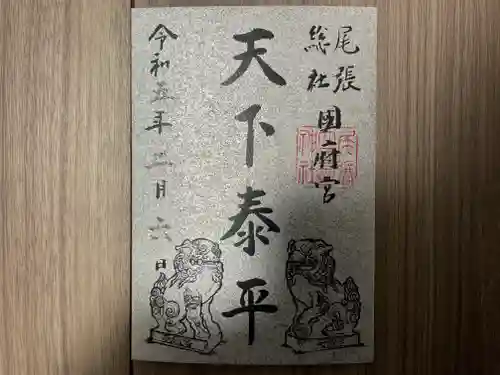 尾張
総社
国府宮
天下泰平
令和五年三月六日